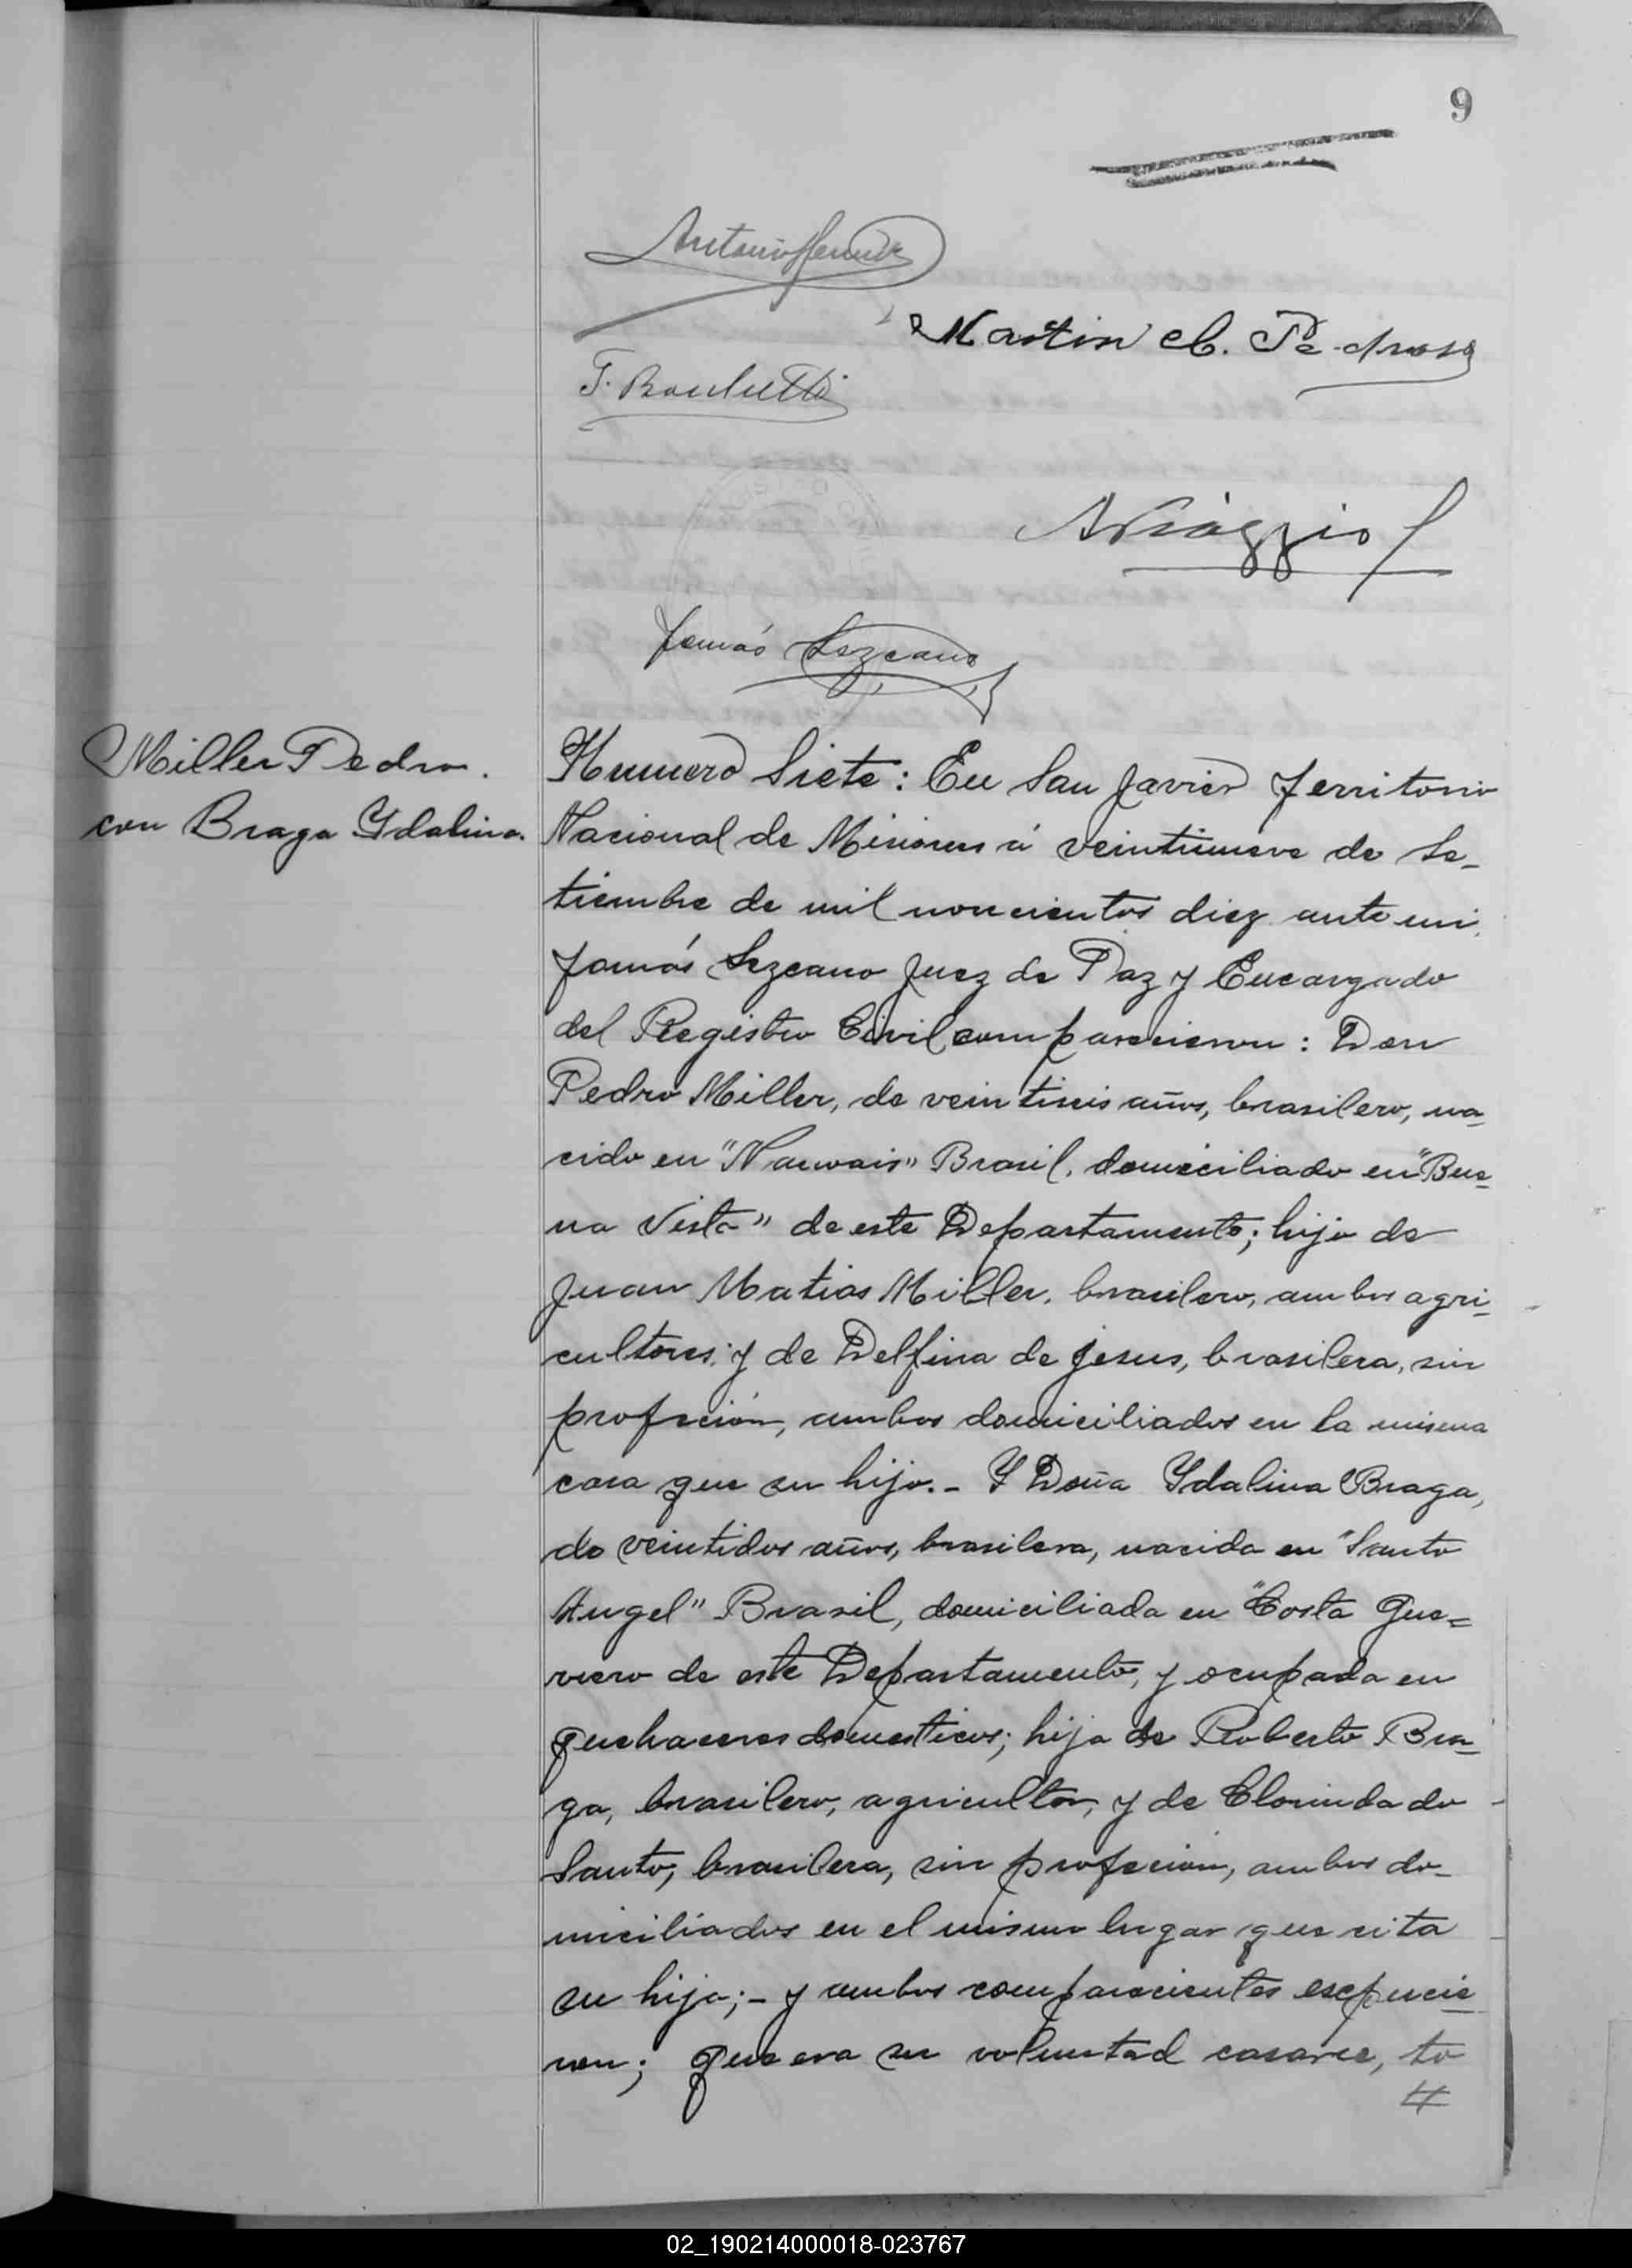 9
Antonio
Martin C. Pedroso
F.
Tomás Lezcano
Miller Pedro.
con Braga Ydalina.
Numero Siete: En San Javier Territorio
Nacional de Misiones á veintinueve de Se-
tiembre de mil novecientos diez ante mi
Tomás Lezcano Juez de Paz y Encargado
del Registro Civil comparecieron: Don
Pedro Miller, de veintiseis años, brasilero, na-
cido en " " Brasil, domiciliado en "Bue-
na Vista" de este Departamento; hijo de
Juan Matias Miller, brasilero, ambos agri-
cultores; y de Delfina de Jesus, brasilera, sin
profecion, ambos domiciliados en la misma
casa que su hijo.- Y Doña Ydalina Braga,
de veintidos años, brasilera, nacida en "Santo
Angel" Brasil, domiciliada en "Costa Gue-
rrero de este Departamento, y ocupada en
quehaceres domesticos; hija de Roberto Bra-
ga, brasilero, agricultor, y de Clorinda do
Santo, brasilera, sin profecion, ambos do-
miciliados en el mismo lugar que cita
su hija;- y ambos comparecientes escpucie-
ron; que era su voluntad casarce, to
02_190214000018-023767